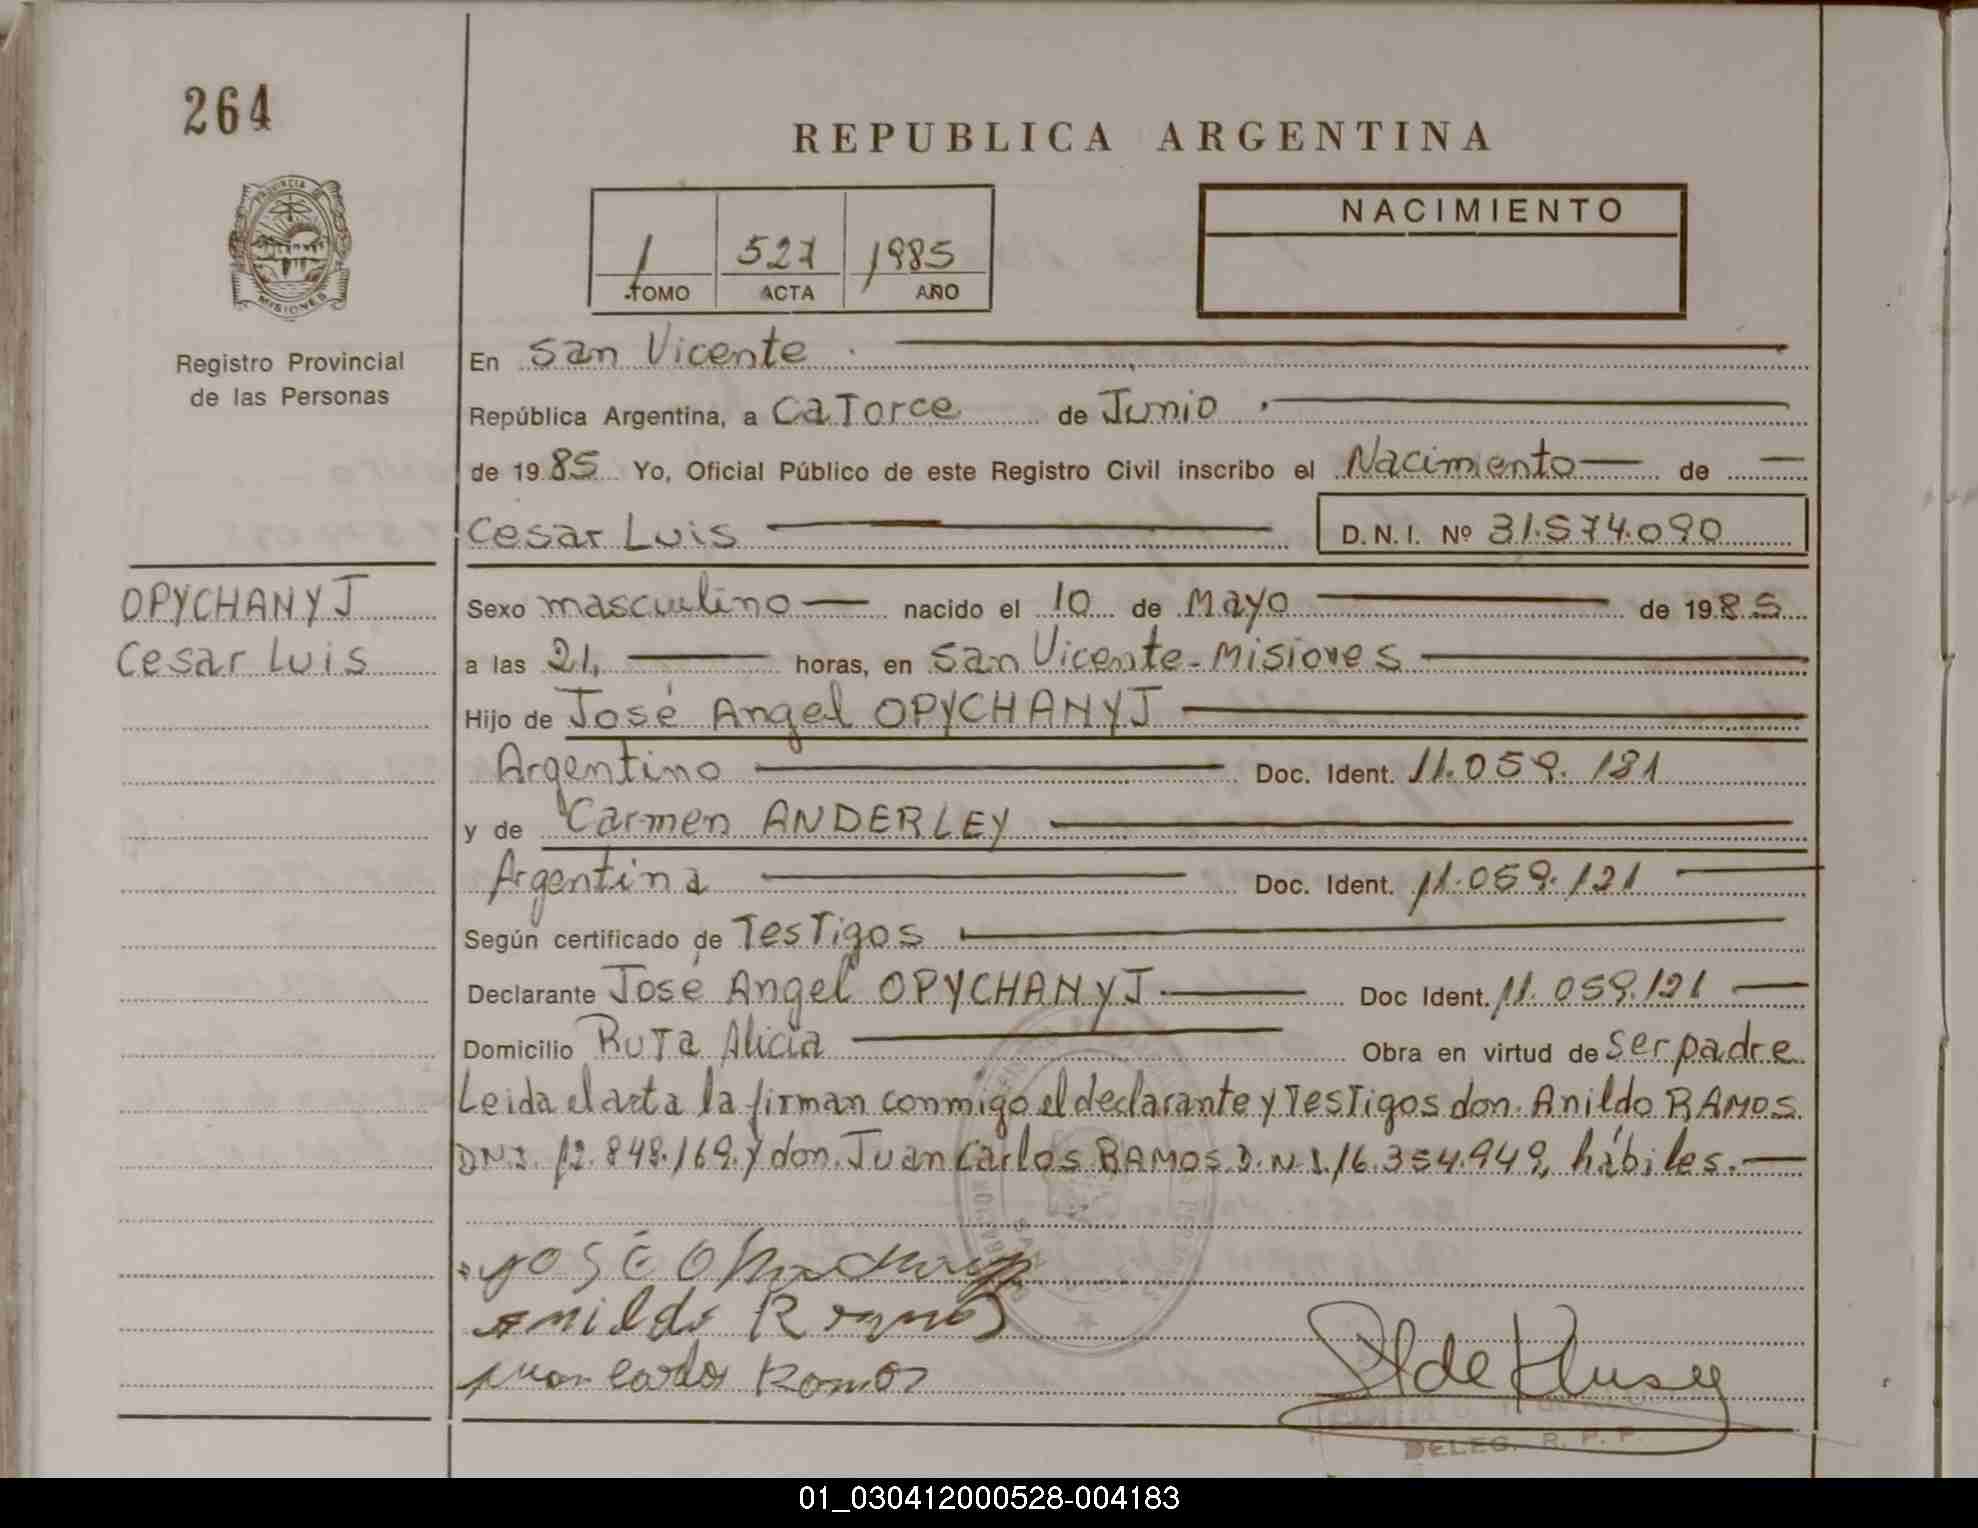 264
REPUBLICA ARGENTINA
PROVINCIA DE
MISIONES
NACIMIENTO
1 527 1985
TOMO ACTA AÑO
Registro Provincial
de las Personas
En San Vicente
República Argentina, a Catorce de Junio
de 1985 Yo, Oficial Público de este Registro Civil inscribo el Nacimiento de
Cesar Luis D.N.I. Nº 31.574.090
OPYCHANYJ
Cesar Luis
Sexo masculino nacido el 10 de Mayo de 1985
a las 21, horas, en San Vicente - Misiones
Hijo de José Angel OPYCHANYJ
Argentino Doc. Ident. 11.059.121
y de Carmen ANDERLEY
Argentina Doc. Ident. 11.059.121
Según certificado de Testigos
Declarante José Angel OPYCHANYJ Doc Ident. 11.059.121
Domicilio Ruta Alicia Obra en virtud de ser padre
Leida el acta la firman conmigo el declarante y Testigos don. Anildo RAMOS.
DNI. 12.848.169. y don. Juan Carlos RAMOS D.N.I. 16.354.949, hábiles.
José
Anildo Ramos
Juan Carlos Ramos
DELEG. R. P. P.
01_030412000528-004183